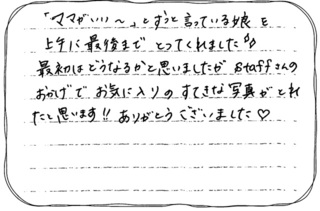 「ママがいい〜」とずっと言っている娘を
上手に最後まで とってくれました♪
最初はどうなるかと思いましたが staffさんの
おかげで お気に入りの すてきな写真が とれ
たと思います!! ありがとう ございました♡